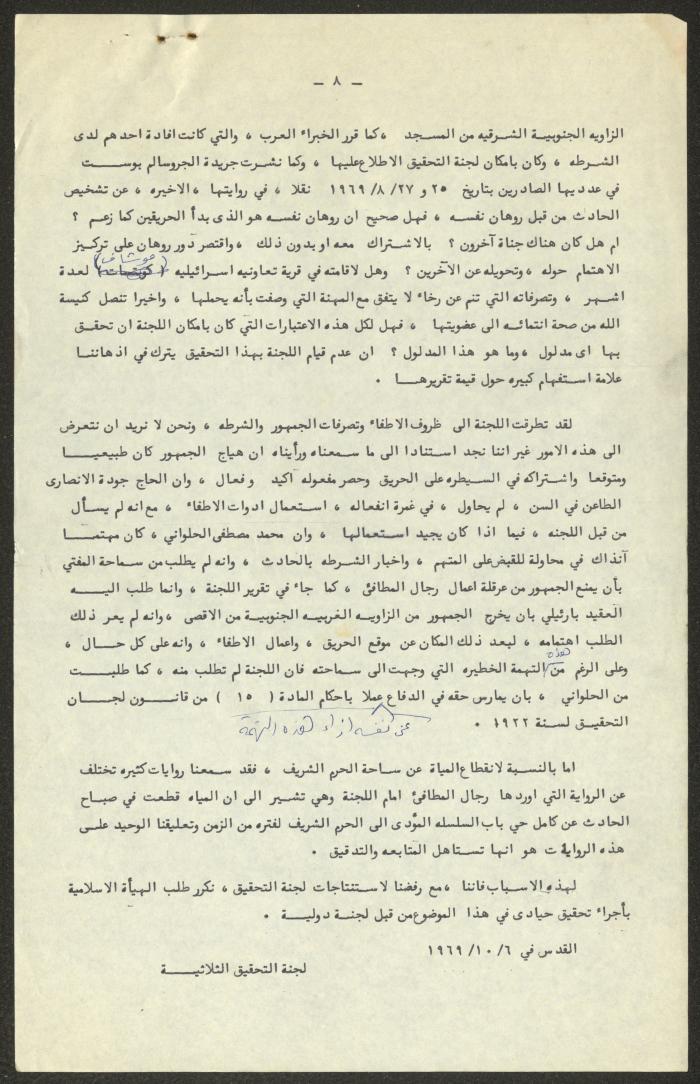 - ٨ -
الزاويه الجنوبيـة الشـرقيه من المسـجد ، كما قرر الخبراء العرب ، والتي كانت افادة احدهم لدى
الشرطه ، وكان بامكان لجنة التحقيق الاطلاع عليها ، وكما نشـرت جريدة الجروسالم بوسـت
في عدديها الصادرين بتاريخ ٢٥ و ٢٧/ ٨/ ١٩٦٩ نقلا ، في روايتها ، الاخيره ، عن تشخيص
الحادث من قبل روهان نفسـه ، فهل صحيح ان روهان نفسـه هو الذى بدأ الحريقين كما زعم ؟
ام هل كان هناك جناة آخرون ؟ بالاشـتراك معه او بدون ذلك ، واقتصر دور روهان على تركيز
الاهتمام حوله ، وتحويله عن الآخرين ؟ وهل لاقامته في قرية تعاونيه اسـرائيليه (موشاف) لعدة
اشـهر ، وتصرفاته التي تنم عن رخاء لا يتفق مع المهنة التي وصفت بأنه يحملها ، واخيرا تنصل كنيسة
الله من صحة انتمائـه الى عضويتها ، فهل لكل هذه الاعتبارات التي كان بامكان اللجنة ان تحقـق
بها اى مدلول ، وما هو هذا المدلول ؟ ان عدم قيام اللجنة بهذا التحقيق يترك في اذهاننـا
علامة استفهام كبيره حول قيمة تقريرهـا .
لقد تطرقت اللجنة الى ظروف الاطفاء وتصرفات الجمهور والشرطه ، ونحن لا نريد ان نتعرض
الى هذه الامور غير اننا نجد استنادا الى ما سـمعناه ورأيناه ان هياج الجمهور كان طبيعيـا
ومتوقعا واشـتراكه في السـيطره على الحريق وحصر مفعوله اكيد وفعال ، وان الحاج جودة الانصارى
الطاعن في السن ، لم يحاول ، في غمرة انفعاله ، استعمال ادوات الاطفاء ، مع انه لم يسـأل
من قبل اللجنه ، فيما اذا كان يجيد اسـتعمالهـا ، وان محمد مصطفى الحلواني ، كان مهتمـا
آنذاك في محاولة للقبض على المتهم ، واخبار الشـرطه بالحادث ، وانه لم يطلب من سماحة المفتي
بأن يمنع الجمهور من عرقلة اعمال رجال المطافئ ، كما جاء في تقرير اللجنة ، وانما طلب اليـه
العقيد بارئيلي بان يخرج الجمهور من الزاويـه الغربيـه الجنوبية من الاقصى ، وانه لم يعر ذلك
الطلب اهتمامه ، لبعد ذلك المكان عن موقع الحريق ، واعمال الاطفاء ، وانه على كل حـال ،
وعلى الرغم من هذه التهمة الخطيره التي وجهت الى سـماحته فان اللجنة لم تطلب منه ، كما طلبـت
من الحلواني ، بان يمارس حقه في الدفاع عن نفسه ازاء هذه التهمة عملا باحكام المادة ( ١٥ ) من قانـون لجـان
التحقيـق لسـنة ١٩٢٢ .
اما بالنسبة لانقطاع المياة عن ساحة الحرم الشريف ، فقد سمعنا روايات كثيره تختلف
عن الرواية التي اوردها رجال المطافئ امام اللجنة وهي تشـير الى ان المياه قطعت في صبـاح
الحادث عن كامل حي باب السلسله المؤدى الى الحرم الشريف لفتره من الزمن وتعليقنا الوحيد علـى
هذه الروايات هو انها تسـتاهل المتابعه والتدقيق .
لهذه الاسـباب فاننا ، مع رفضنا لاسـتنتاجات لجنة التحقيق ، نكرر طلب الهيأة الاسلامية
بأجراء تحقيق حيادى في هذا الموضوع من قبل لجنة دوليـة .
القدس في ٦/ ١٠/ ١٩٦٩
لجنة التحقيق الثلاثيـة